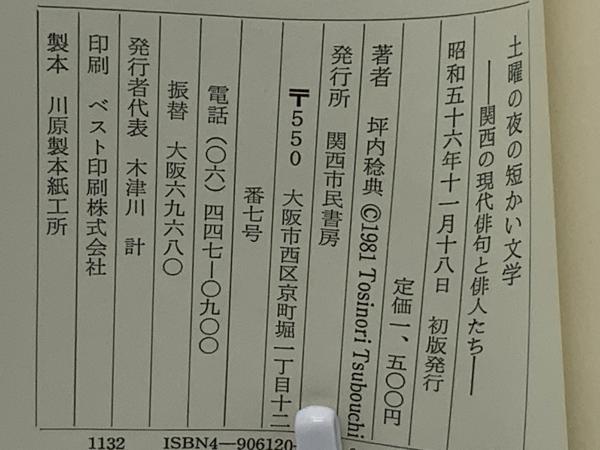 土曜の夜の短かい文学
――関西の現代俳句と俳人たち――
昭和五十六年十一月十八日 初版発行
定価一、五〇〇円
著者 坪内稔典 ©1981 Tosinori Tsubouchi
発行所 関西市民書房
〒550 大阪市西区京町堀一丁目十二
番七号
電話(〇六)四四七―〇九〇〇
振替 大阪六九六八〇
発行者代表 木津川 計
印刷 ベスト印刷株式会社
製本 川原製本紙工所
1132 ISBN4―906120-